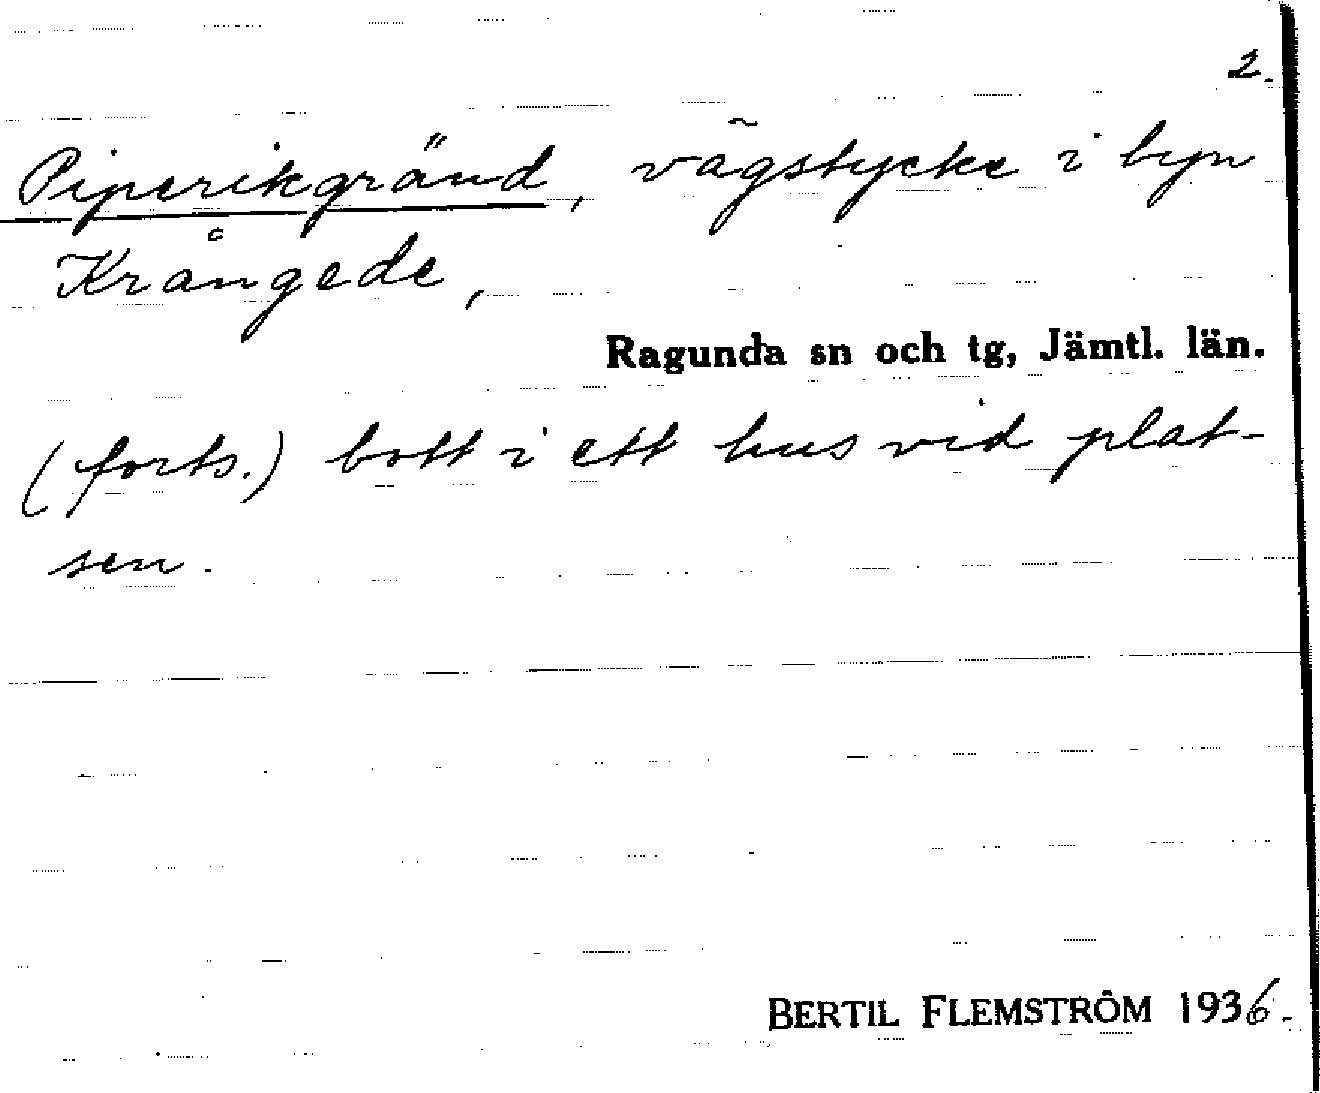 2.
Piperikgränd, vägstycke i byn
Krångede,
Ragunda sn och tg, Jämtl. län.
(forts.) bott i ett hus vid plat-
sen.
BERTIL FLEMSTRÖM 1936.